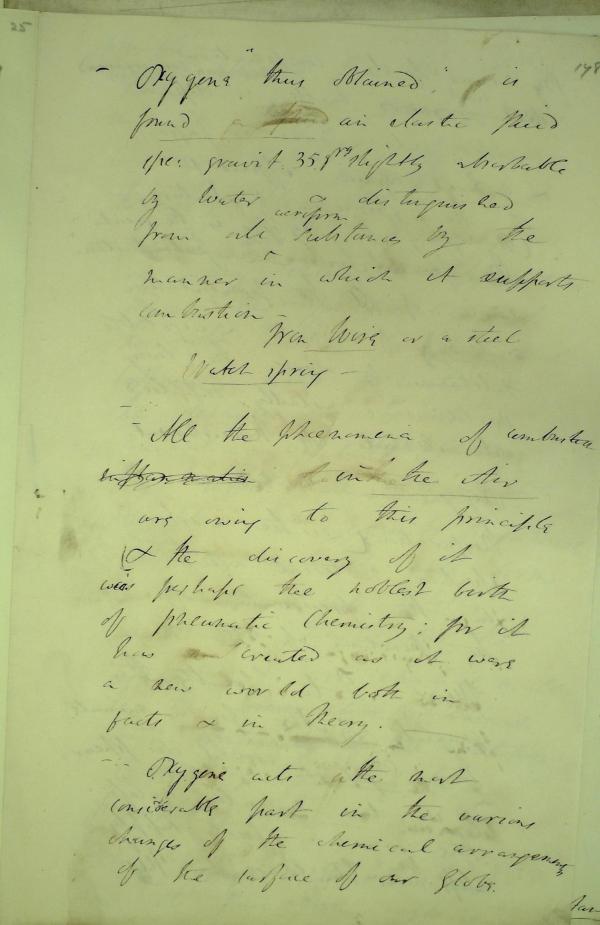 25
148
– Oxygene "thus obtained" is
found an elastic fluid
spec: gravit. 35 grs slightly absorbable
by water & distinguished
aeriform
from all substances by the
manner in which it supports
combustion –
Iron Wire or a steel
Watch spring –
– All the phaenomena of combustion
inflammation in the Air
are owing to this principle
& the discovery of it
was perhaps the noblest birth
of pneumatic Chemistry; for it
has created as it were
a new world both in
facts & in theory.
-- Oxygene acts the most
considerable part in the various
changes of the chemical arrangements
of the surface of our Globe.